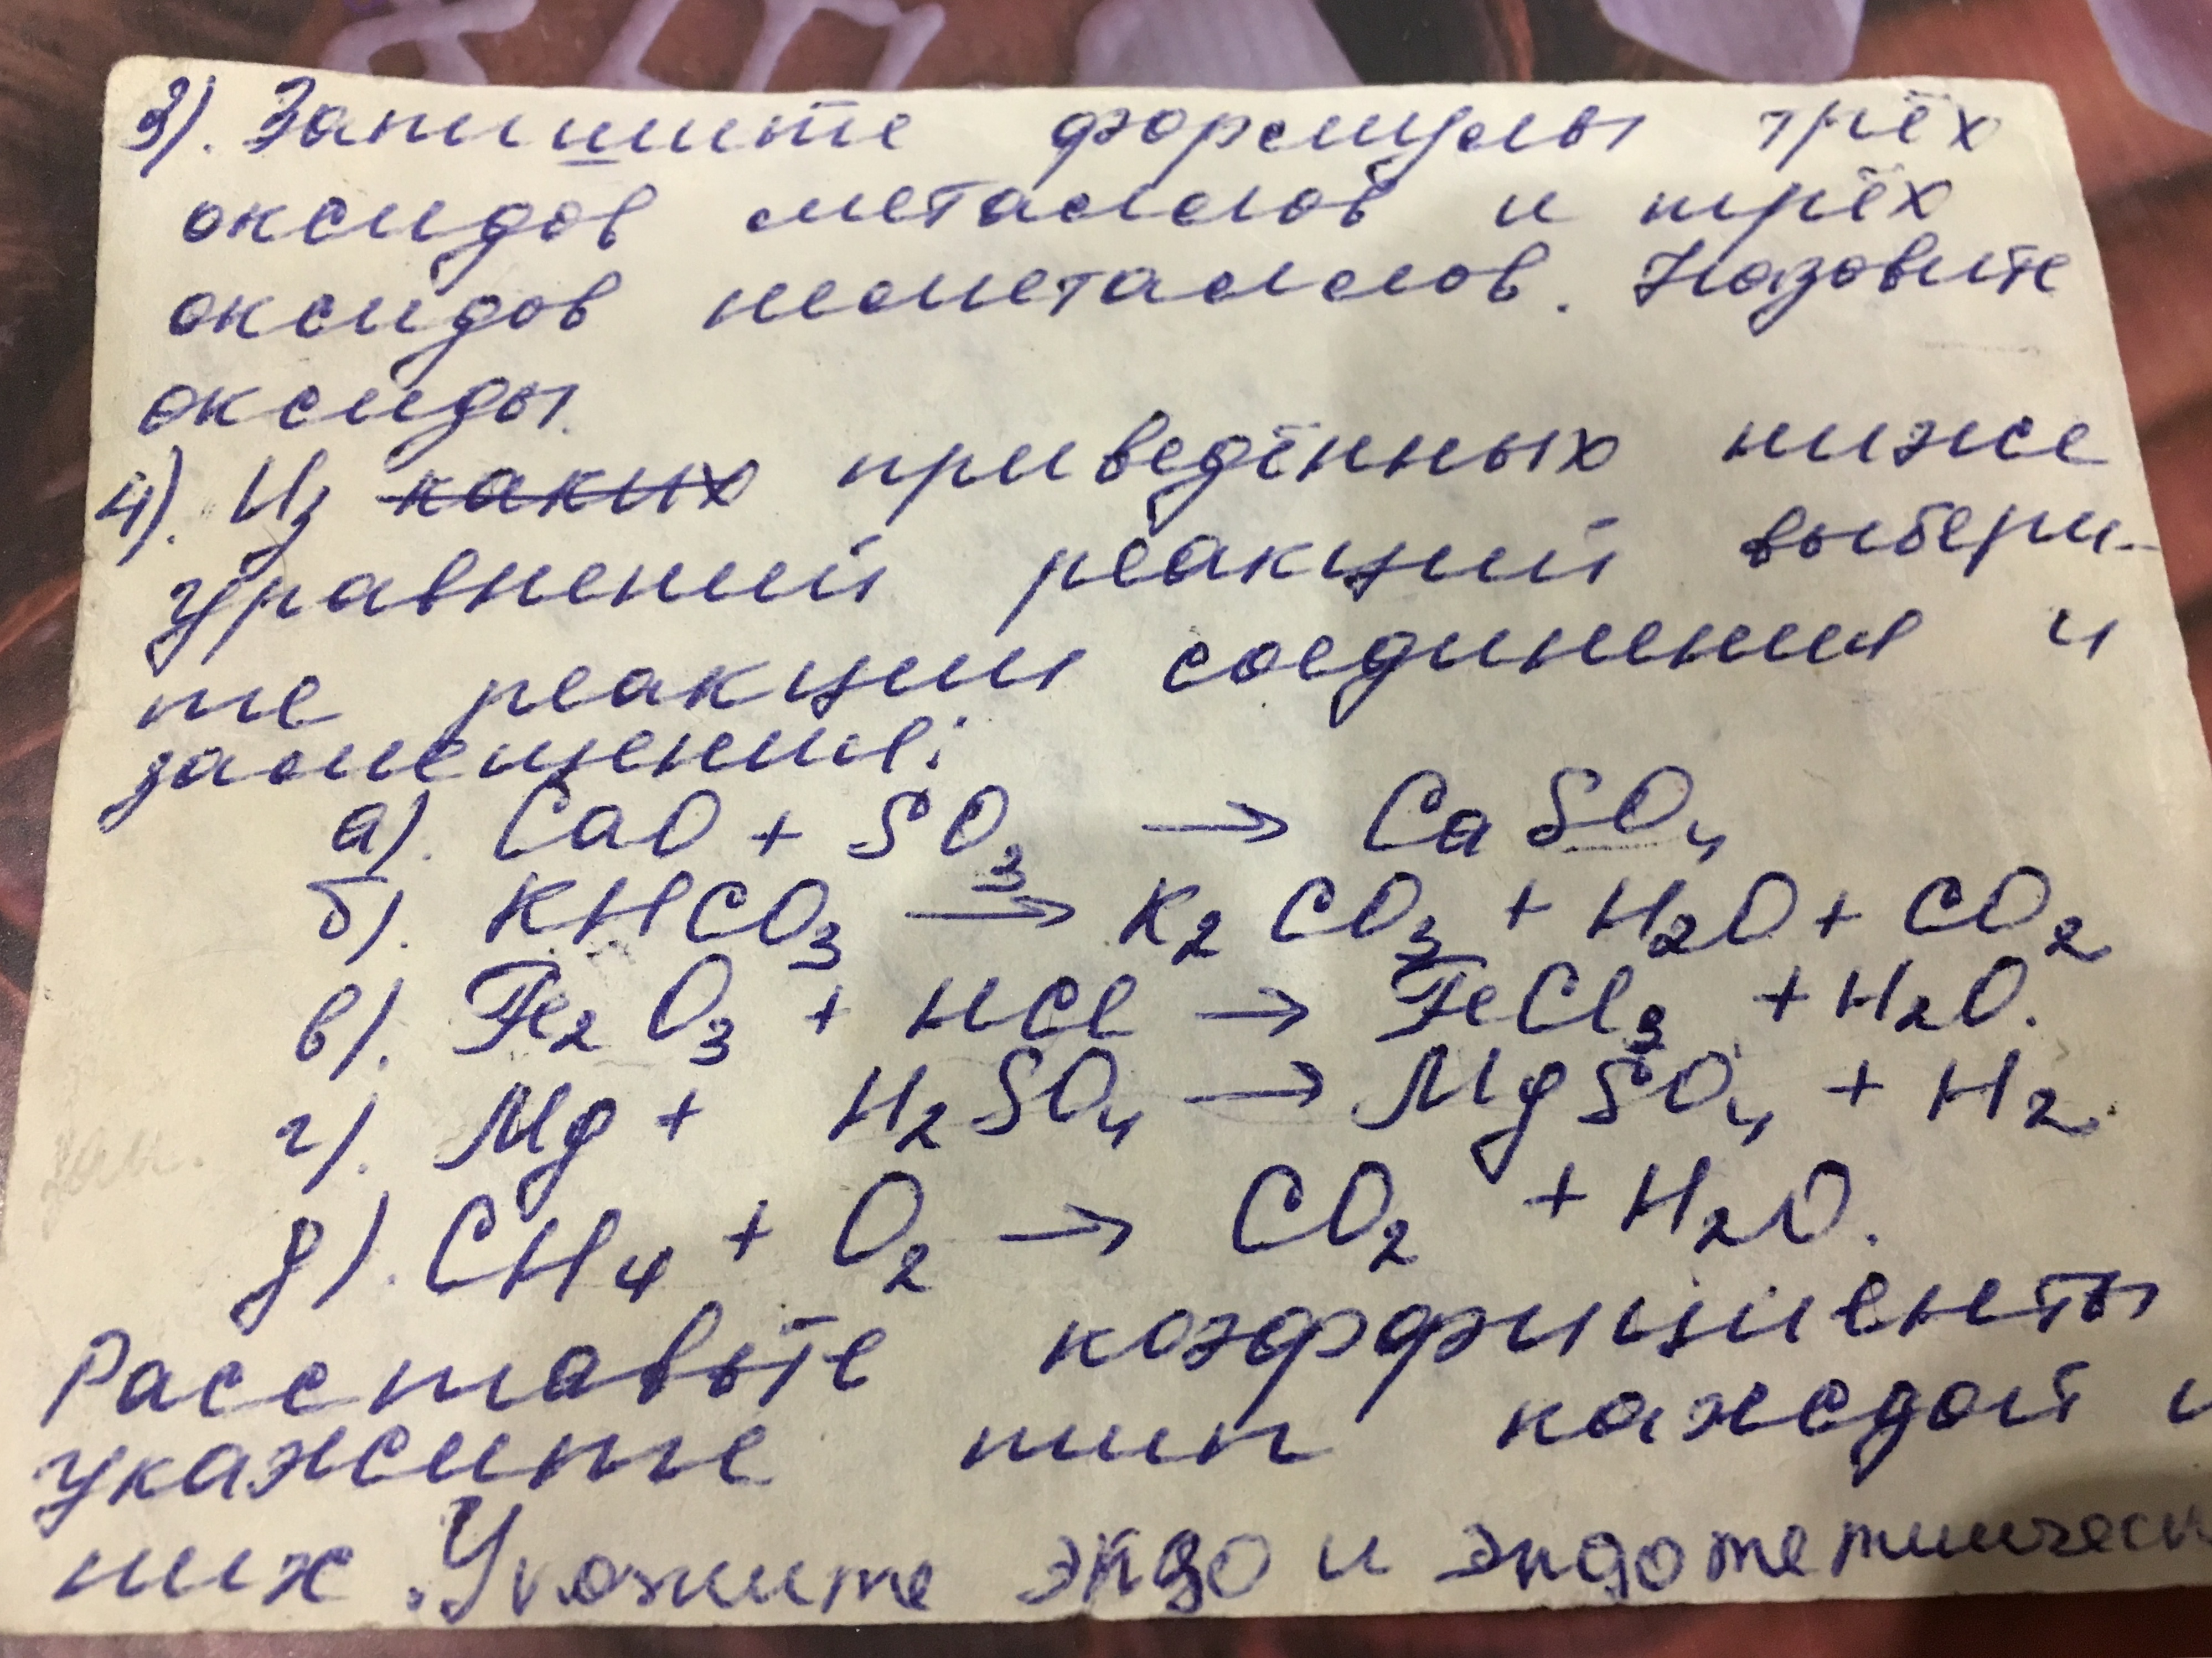 3). Запишите формулы трёх
оксидов металлов и трёх
оксидов неметаллов. Назовите
оксиды.
4). Из каких приведённых ниже
уравнений реакций выбери-
те реакции соединения и
замещения:
а). CaO + SO₃ → CaSO₄
б). KHCO₃ → K₂CO₃ + H₂O + CO₂
в). Fe₂O₃ + HCl → FeCl₃ + H₂O.
г). Mg + H₂SO₄ → MgSO₄ + H₂.
зам.
д). CH₄ + O₂ → CO₂ + H₂O.
Расставьте коэффициенты
укажите тип каждой и
них. Укажите экзо и